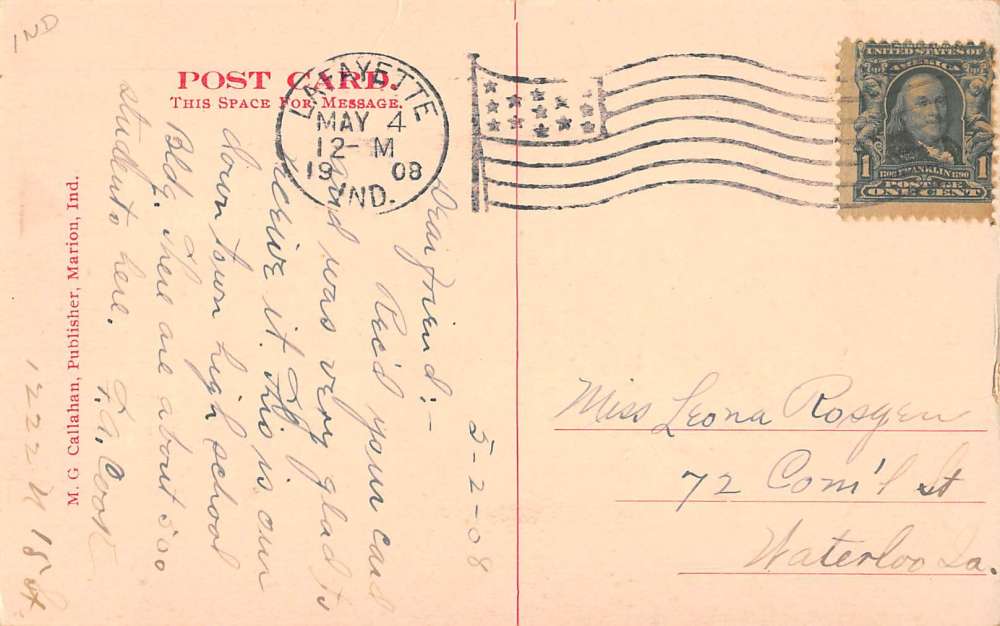 IND
POST CARD.
THIS SPACE FOR MESSAGE.
LAFAYETTE
MAY 4
12-M
19 08
IND.
UNITED STATES OF
AMERICA
1790 FRANKLIN 1790
1 POSTAGE 1
ONE CENT
M. G Callahan, Publisher, Marion, Ind.
5-2-08
Dear friend:-
Rec'd your card
and was very glad to
receive it. This is our
down town high school
Bldg. There are about 500
students here. F. A. Cook
1222 N 18 st.
Miss Leona Rosgen
72 Com'l St
Waterloo Ia.